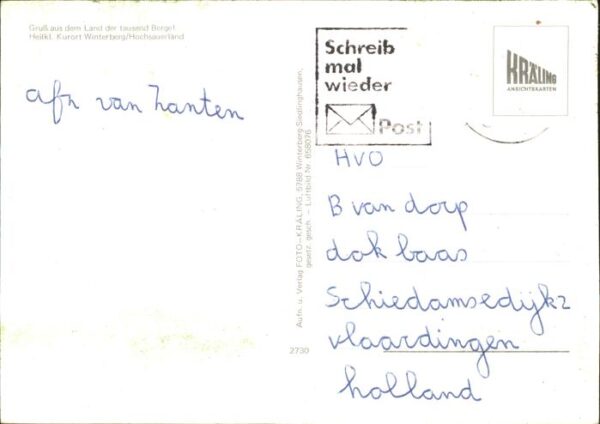 Gruß aus dem Land der tausend Berge!
Heilkl. Kurort Winterberg/Hochsauerland
afz van Zanten
Schreib
mal
wieder
Post
KRÄLING
ANSICHTSKARTEN
Aufn. u. Verlag FOTO-KRÄLING, 5788 Winterberg-Siedlinghausen,
gesetz. gesch. – Luftbild Nr. 658076
2730
HVO
B van dorp
dok baas
Schiedamsedijk 2
vlaardingen
holland